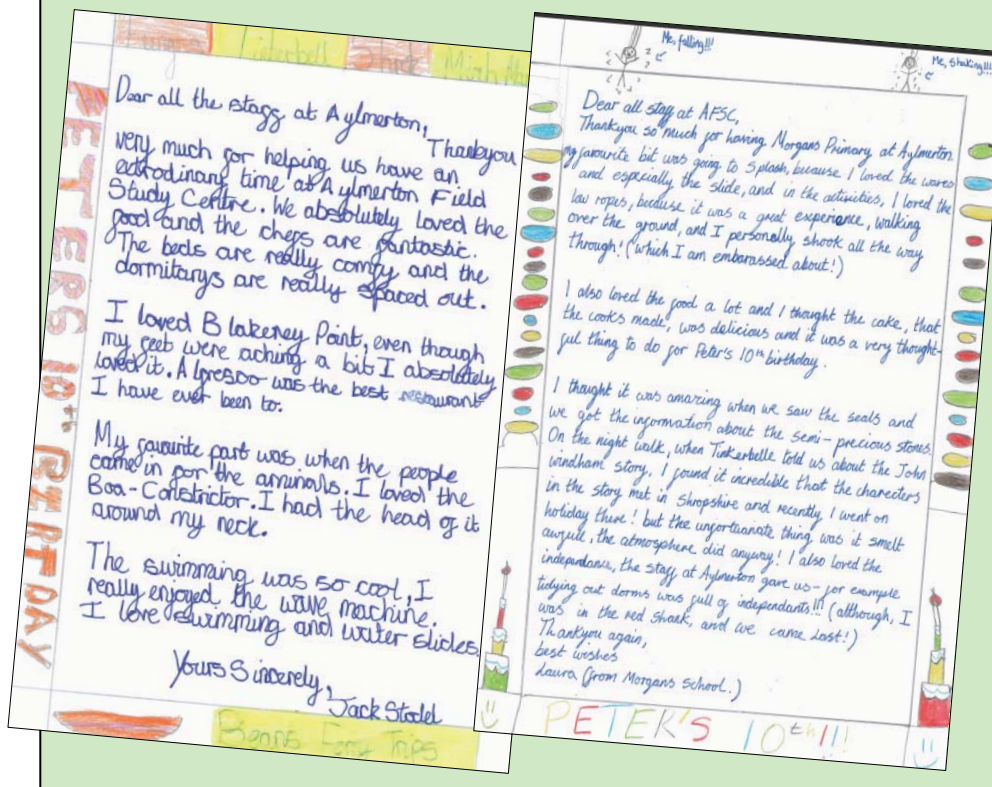 Tinkerbell
Dear all the staff at Aylmerton,
Thankyou
very much for helping us have an
extrodinary time at Aylmerton Field
Study Centre. We absolutely loved the
food and the chefs are fantastic.
The beds are really comfy and the
dormitarys are really spaced out.
I loved Blakeney Point, even though
my feet were aching a bit I absolutely
loved it. Alfresco was the best restaurant
I have ever been to.
My favourite part was when the people
came in for the aminals. I loved the
Boa-Constrictor. I had the head of it
around my neck.
The swimming was so cool, I
really enjoyed the wave machine.
I love swimming and water slides.
Yours Sincerely,
Jack Stodel
PETERS 10th BIRTDAY
Beans Ferry Trips
Me, falling!!!
Me, shaking!!!
Dear all staff at AFSC,
Thankyou so much for having Morgans Primary at Aylmerton
my favourite bit was going to Splash, because I loved the waves
and especially the slide, and in the activities, I loved the
low ropes, because it was a great experience, walking
over the ground, and I personally shook all the way
through! (which I am embarassed about!)
I also loved the food a lot and I thought the cake, that
the cooks made, was delicious and it was a very thought-
ful thing to do for Peter's 10th birthday.
I thought it was amazing when we saw the seals and
we got the information about the semi-precious stones.
On the night walk, when Tinkerbelle told us about the John
windham story, I found it incredible that the charecters
in the story met in Shropshire and recently, I went on
holiday there! but the unfortuanate thing was it smelt
awfull, the atmosphere did anyway! I also loved the
independance, the staff at Aylmerton gave us - for example
tidying out dorms was full of independants!!! (although, I
was in the red shank, and we came last!)
Thankyou again,
best wishes
Laura (from Morgans School.)
PETER'S 10th!!!